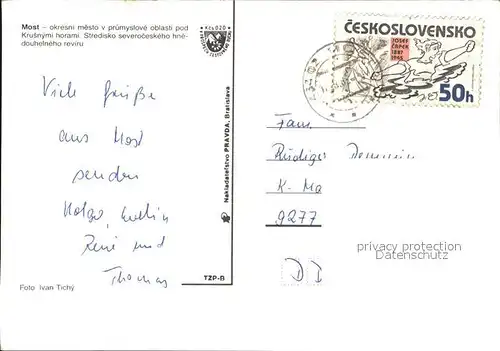 Most – okresní město v průmyslové oblasti pod
Krušnými horami. Středisko severočeského hně-
douhelného revíru
Kčs 0,20
ČESKOSLOVENSKO
JOSEF
ČAPEK
1887
1945
50h
Viele Grüße
aus Most
senden
Holger,
René und
Thomas
Nakladatelství PRAVDA, Bratislava
Fam.
Rüdiger
K-Ma
9277
privacy protection
Datenschutz
DDR
TZP-B
Foto Ivan Tichý